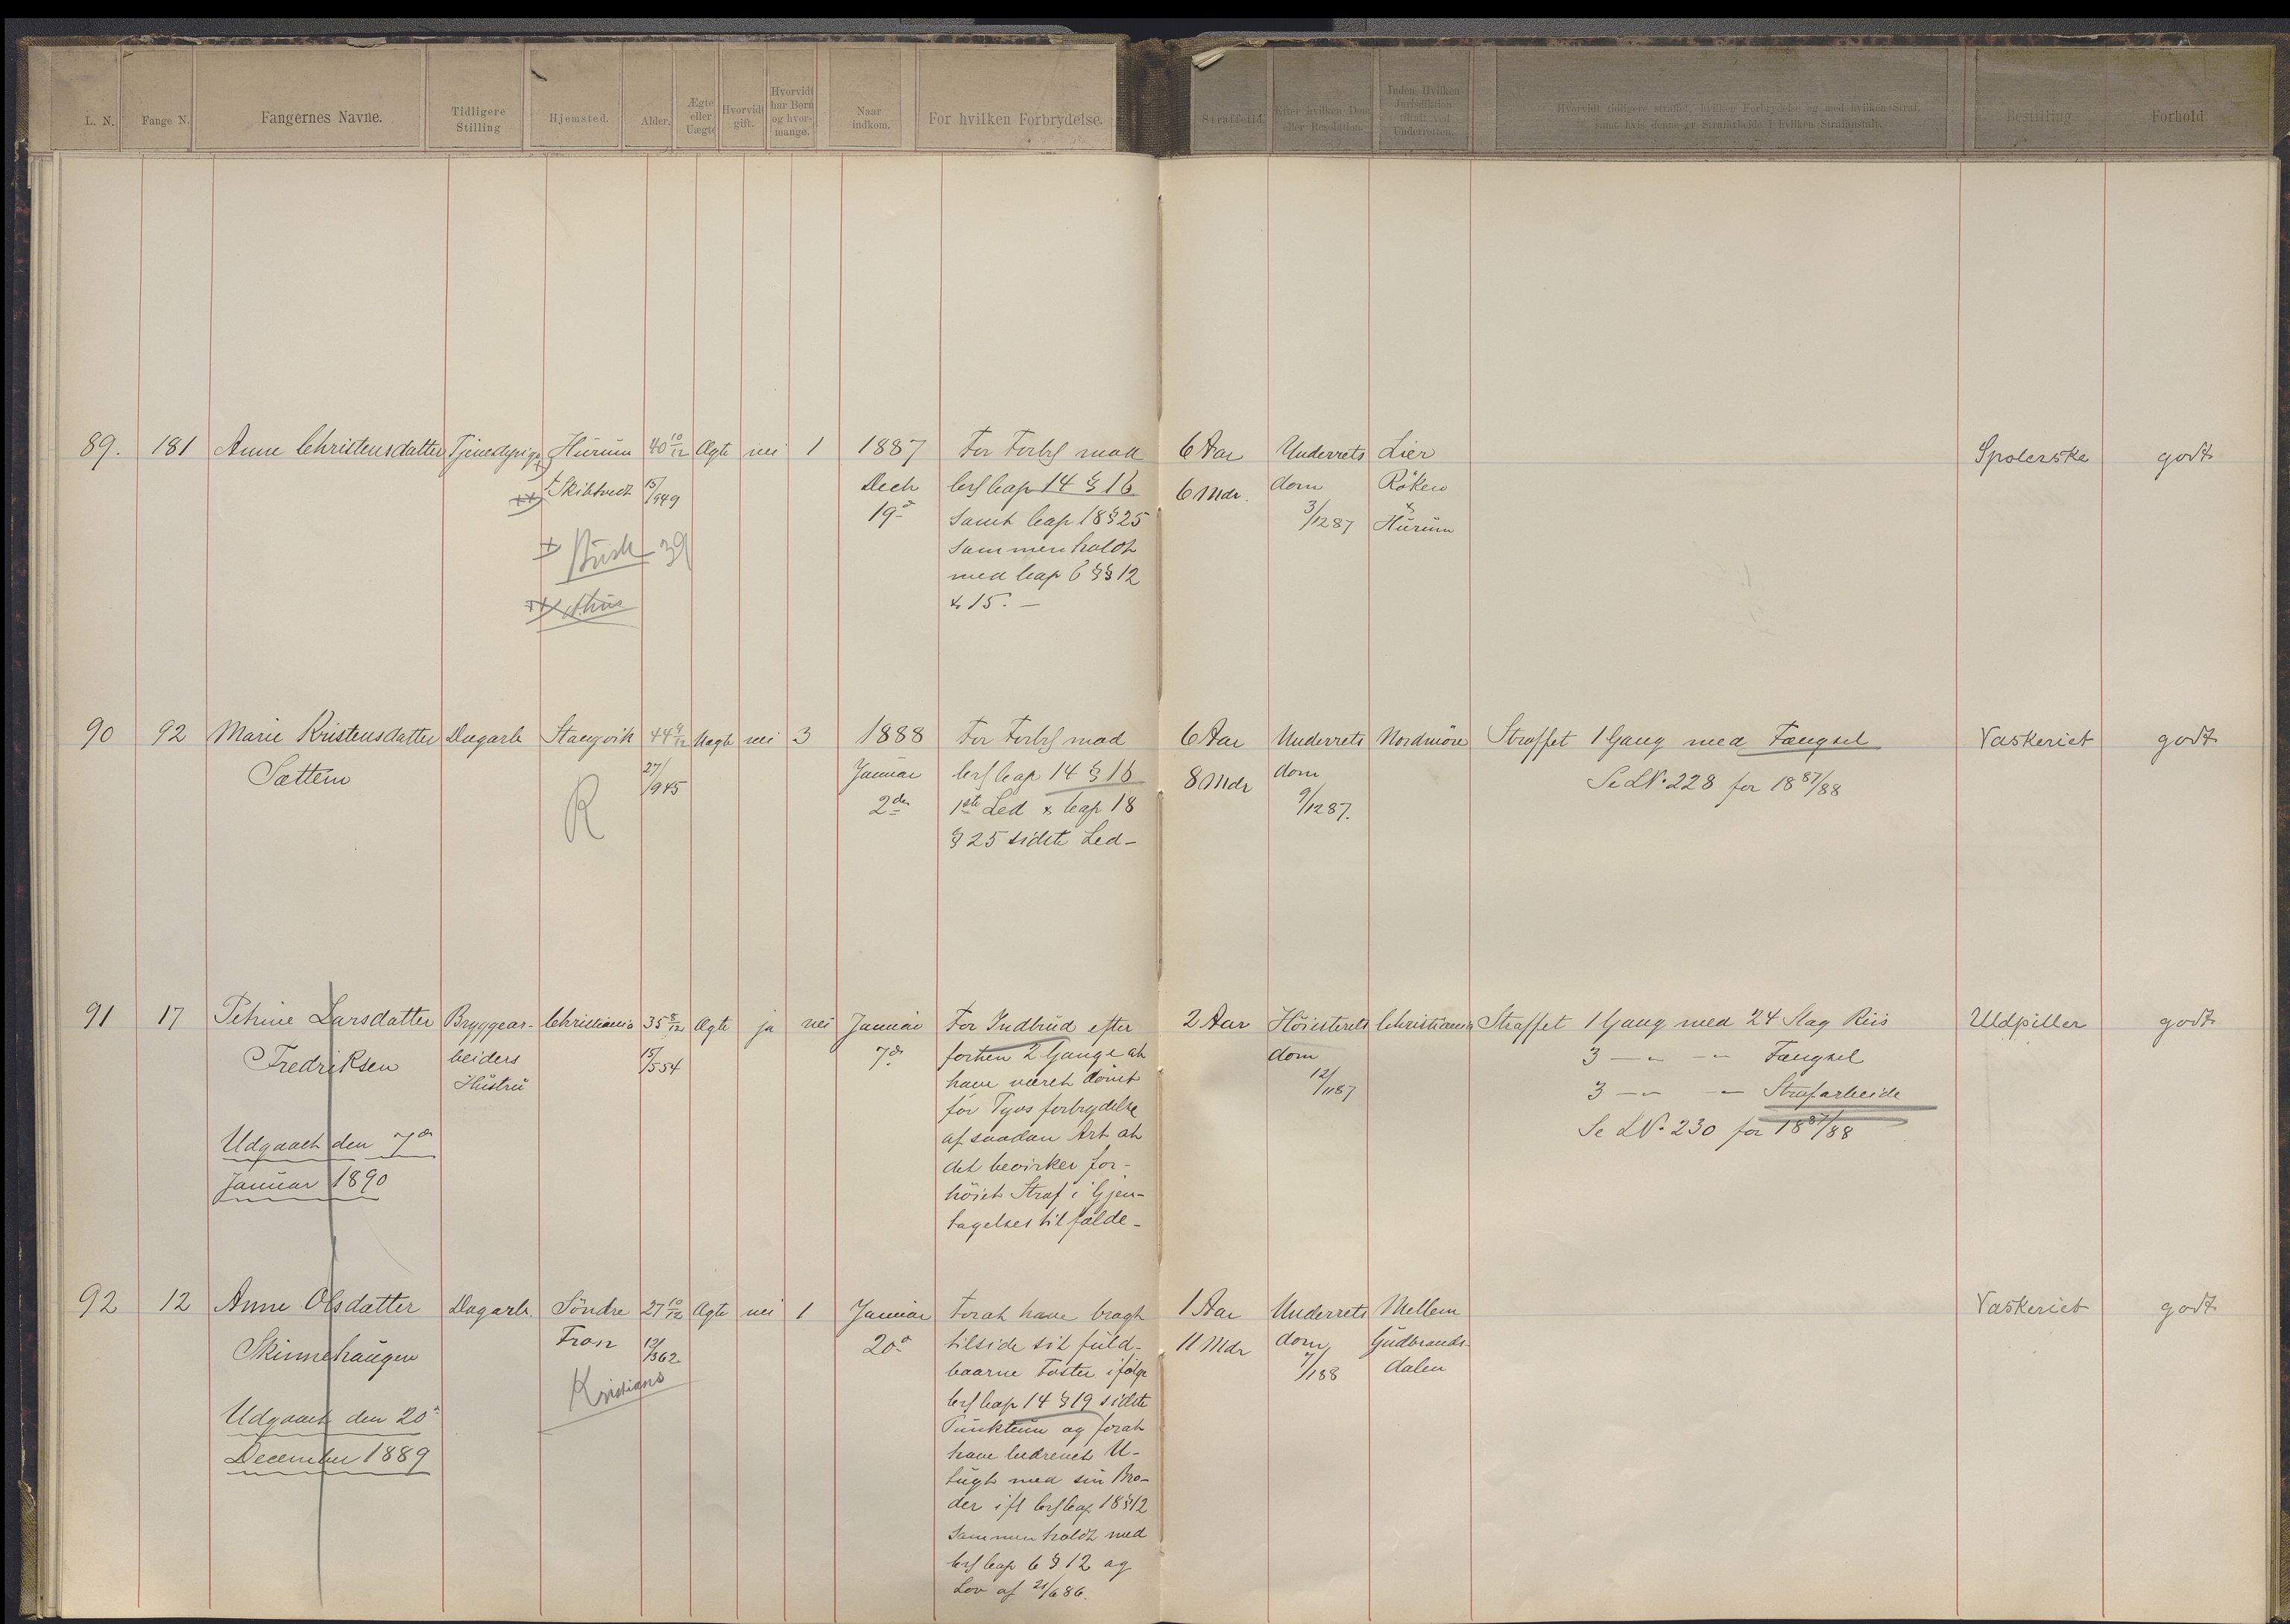 L. N.
Fange N.
Fangernes Navne.
Tidligere
Stilling
Hjemsted.
Alder.
Ægte
eller
Uægte
Hvorvidt
gift.
Hvorvidt
har Børn
og hvor-
mange.
Naar
indkom.
For hvilken Forbrydelse.
Straffetid.
Efter hvilken Dom
eller Resolution.
Inden Hvilken
Jurisdiktion
tiltalt ved
Underretten.
Hvorvidt tidligere straffet, hvilken Forbrydelse og med hvilken Straf,
samt hvis denne er Strafarbeide i hvilken Strafanstalt.
Bestilling
Forhold
89.
181
Anne Christensdatter
Tjenestepige
Hurum
+ Skibtvedt
++
+ Busk 39
++ Ahus
40 10/12
15/949
Ægte
nei
1
1887
Decb
19de
For Forbr mod
Crl Cap 14 § 16
samt Cap 18 § 25
sammenholdt
med Cap 6 §§ 12
& 15. —
6 Aar
6 Mdr.
Underrets
dom
3/12 87
Lier
Röken
&
Hurum
Spolerske
godt
90
92
Marie Kristensdatter
Sættem
Dagarb
Stangvik
R
44 9/12
27/945
Uægte
nei
3
1888
Januar
2den
For Forbr mod
Crl Cap 14 § 16
1ste Led & Cap 18
§ 25 sidste Led -
6 Aar
8 Mdr
Underrets
dom
9/12 87.
Nordmöre
Straffet 1 Gang med Fængsel
Se LN. 228 for 18 87/88
Vaskeriet
godt
91
17
Petrine Larsdatter
Fredriksen
Udgaaet den 7de
Januar 1890
Bryggear-
beiders
Hustru
Christiania
35 8/12
15/554
Ægte
ja
nei
Januar
7de
For Indbrud efter
forhen 2 Gange at
have været dömt
for Tyvsforbrydelse
af saadan Art at
det bevirker for-
höiet Straf i Gjen-
tagelsestilfælde -
2 Aar
Höiesterets
dom
12/11 87
Christiania
Straffet 1 Gang med 24 Slag Riis
3 — " — Fængsel
3 — " — Strafarbeide
Se LN. 230 for 18 87/88
Uldpiller
godt
92
12
Anne Olsdatter
Skinnehaugen
Udgaaet den 20de
December 1889
Dagarb.
Söndre
Fron
Kristians
27 10/12
12/362
Ægte
nei
1
Januar
20de
Forat have bragt
tilside sit fuld-
baarne Foster ifölge
Crl Cap 14 § 19 sidste
Punktum og forat
have bedrevet U-
tugt med sin Bro-
der ifl Crl Cap 18 § 12
sammenholdt med
Crl Cap 6 § 12 og
Lov af 21/6 86.
1 Aar
11 Mdr
Underrets
dom
7/1 88
Mellem
Gudbrands-
dalen
Vaskeriet
godt